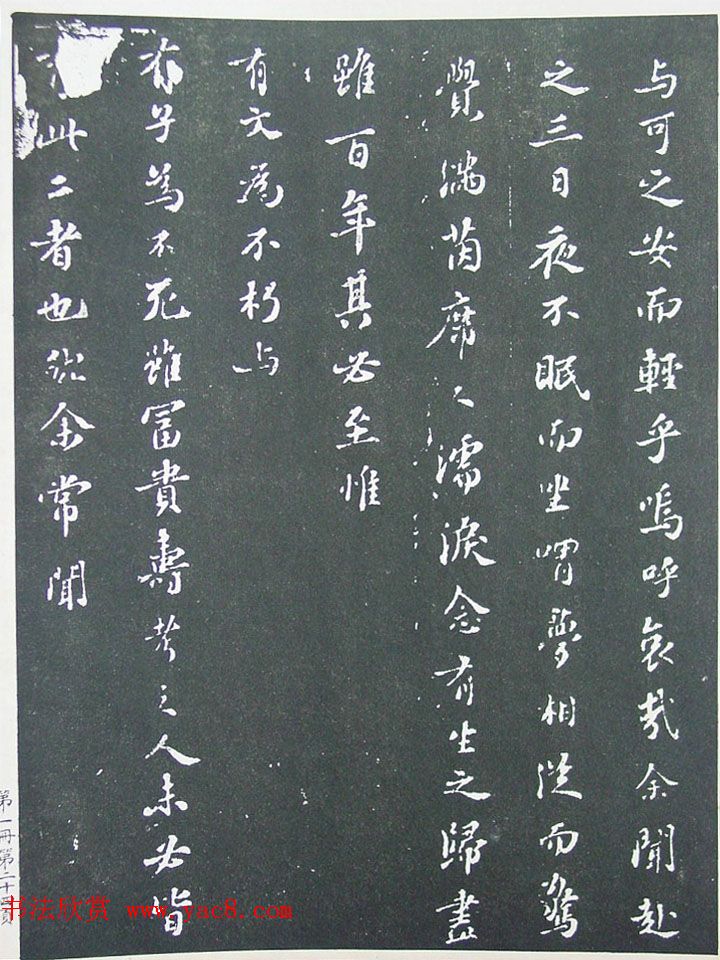 与可之安而輕乎嗚呼哀哉余聞赴
之三日夜不眠而坐喟夢相從而驚
覺滿茵席之濡淚念有生之歸盡
雖百年其必至惟
有文為不朽与
有子為不死雖富貴壽考之人未必皆
此二者也然余常聞
第一冊第二十頁
书法欣赏 www.yac8.com